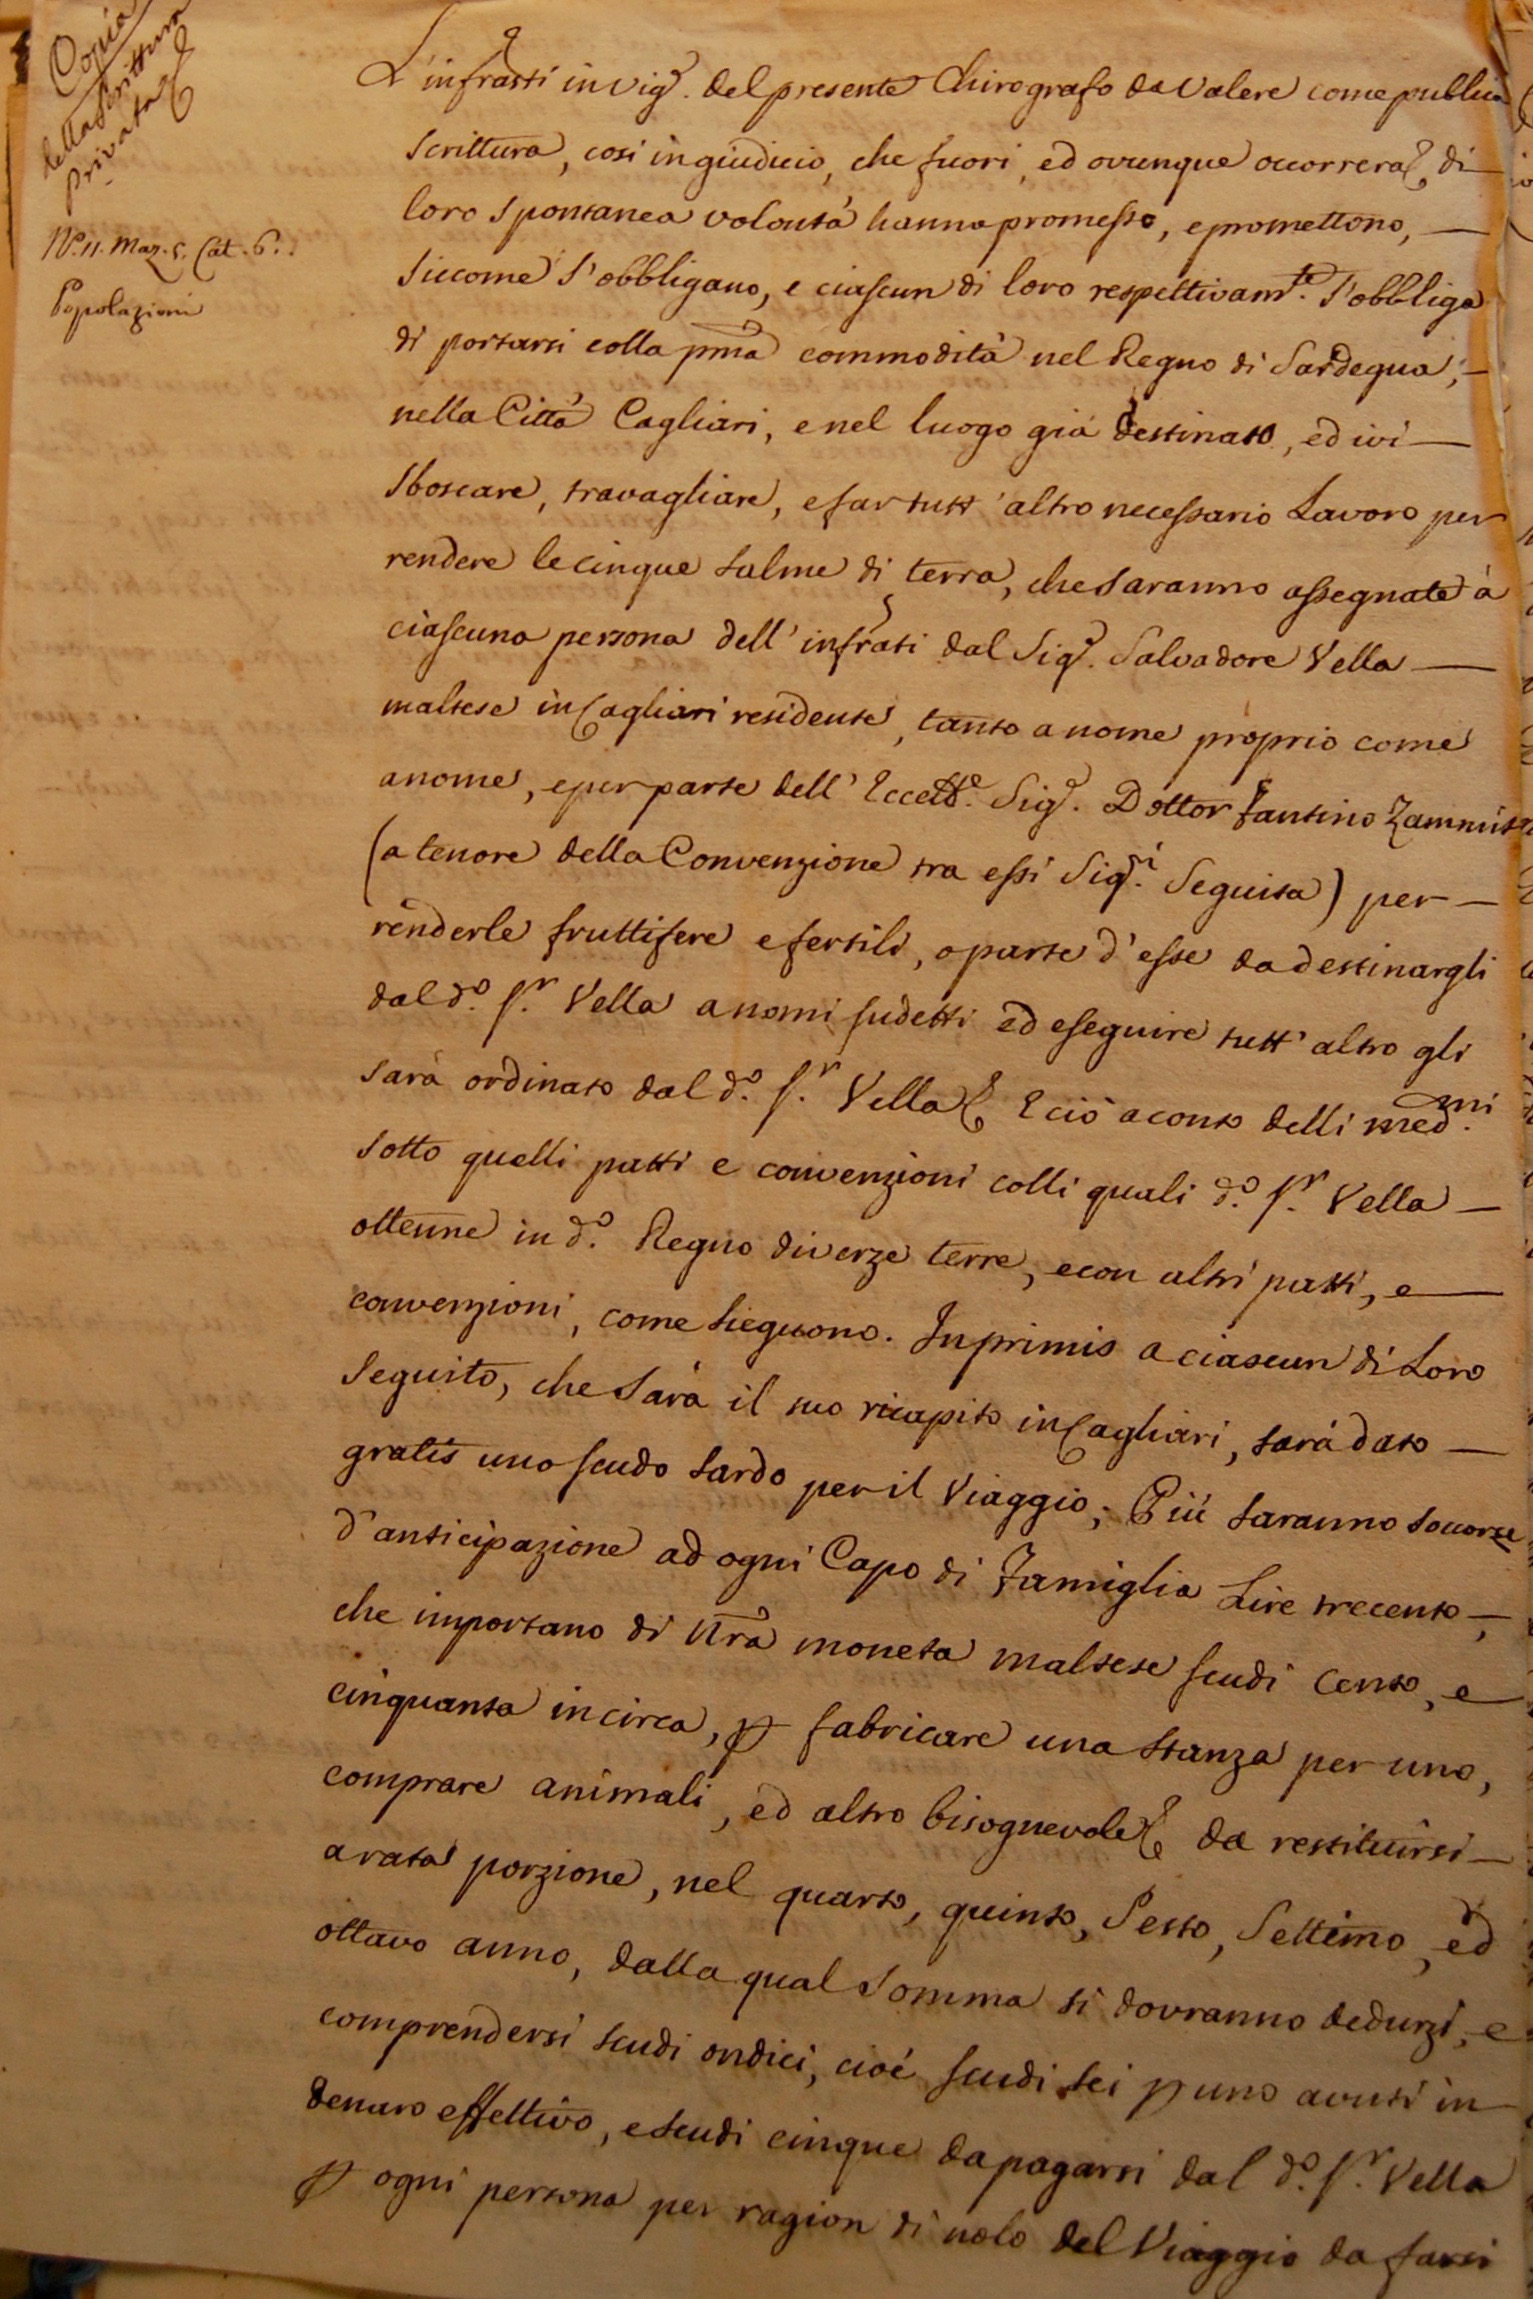 Copia
della Scrittura
Privata
N.° 11. Maz. 5. Cat. 6.
Popolazioni
L'infrasti in vig.e del presente Chirografo da valere come publica
scrittura, così in giudicio, che fuori, ed ovunque occorrera &, di
loro spontanea volontà hanno promesso, e promettono,
siccome s'obbligano, e ciascun di loro respettivam.te s'obbliga
di portarsi colla pma commodità nel Regno di Sardegna,
nella Città Cagliari, e nel luogo già destinato, ed ivi
sboscare, travagliare, e far tutt'altro necessario Lavoro per
rendere le cinque salme di terra, che saranno assegnate à
ciascuna persona dell'infrasti dal Sig.e Salvadore Vella
maltese in Cagliari residente, tanto a nome proprio come
a nome, e per parte dell'Eccell.e Sig.e Dottor Fantino Zammit
(a tenore della Convenzione tra essi Sig.ri Seguita) per
renderle fruttifere e fertili, o parte d'esse da destinargli
dal d.o S.r Vella a nomi sudetti ed eseguire tutt'altro gli
sarà ordinato dal d.o S.r Vella & E ciò a conto delli med.mi
sotto quelli patti e convenzioni colli quali d.o S.r Vella
ottenne in d.o Regno diverze terre, e con altri patti, e
convenzioni, come sieguono. Inprimis a ciascun di Loro
seguito, che sarà il suo ricapito in Cagliari, sarà dato
gratis uno scudo sardo per il Viaggio; Più saranno socorze
d'anticipazione ad ogni Capo di Famiglia Lire trecento,
che importano di nrã moneta maltese scudi cento, e
cinquanta incirca, p fabricare una stanza per uno,
comprare animali, ed altro bisognevole & da restituirsi
a rata porzione, nel quarto, quinto, Sesto, Settimo, ed
ottavo anno, dalla qual somma si dovranno dedurzi, e
comprendersi scudi ondici, cioè scudi sei p uno avuti in
denaro effettivo, e scudi cinque da pagarsi dal d.o S.r Vella
p ogni persona per ragion di nolo del Viaggio da farsi